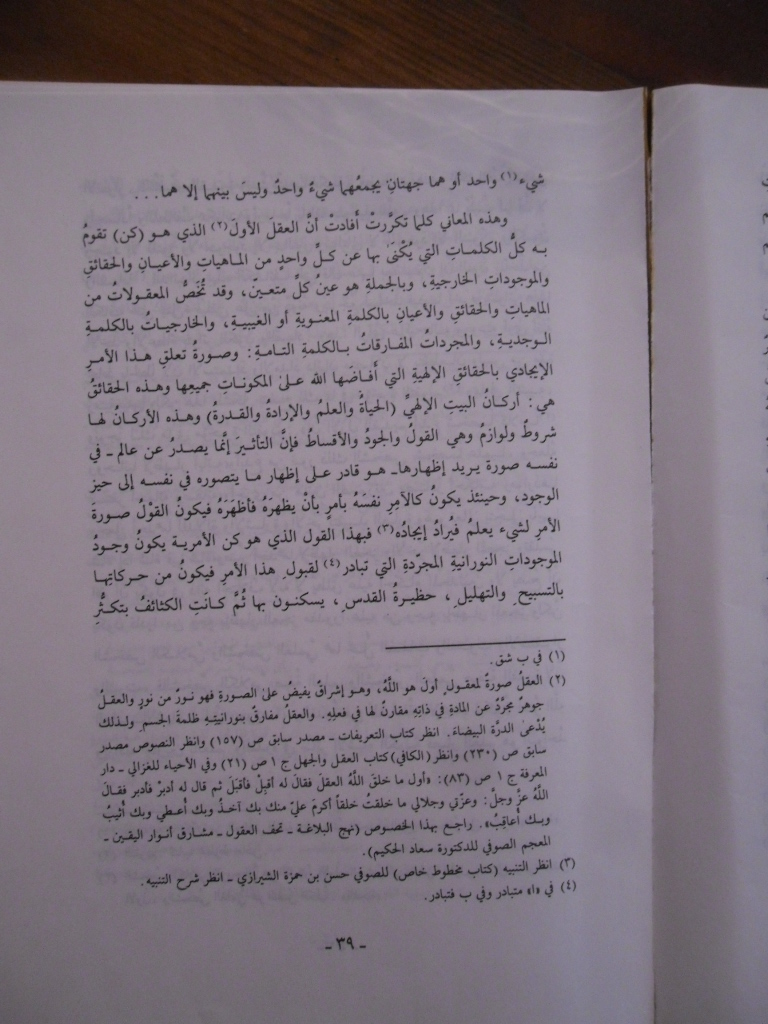 شيء(١) واحد أو هما جهتانِ يجمعُهما شيءٌ واحدٌ وليسَ بينهما إلا هما...
وهذه المعاني كلما تكرَّرتْ أَفادتْ أنَّ العقلَ الأولَ(٢) الذي هـو (كن) تقومُ
بـه كلُّ الكلمـاتِ التي يُكْنَىٰ بها عن كـلِّ واحدٍ من المـاهياتِ والأعيـانِ والحقائقِ
والموجوداتِ الخارجيةِ، وبالجملةِ هو عينُ كلِّ متعـينٍ، وقد تُخَصُّ المعقـولاتُ من
الماهياتِ والحقائقِ والأعيانِ بالكلمةِ المعنويةِ أو الغيبيةِ، والخارجيـاتُ بالكلمـةِ
الـوجديـةِ، والمجرداتُ المفـارقاتُ بـالكلمةِ التـامـةِ: وصـورةُ تعلقِ هـذا الأمـرِ
الإيجادي بالحقائقِ الإلهيةِ التي أَفـاضَها الله عـلىٰ المكونـاتِ جميعِها وهـذه الحقائقُ
هي: أركـانُ البيتِ الإلهيِّ (الحياةُ والعلمُ والإرادةُ والقـدرةُ) وهـذه الأركـانُ لهـا
شروطٌ ولوازمُ وهي القولُ والجودُ والأقساطُ فإنَّ التأثـيرَ إنَّما يصـدرُ عن عالم ـ في
نفسـه صورة يـريد إظهـارهاـ هـو قادر عـلى إظهار مـا يتصوره في نفسـه إلى حيز
الوجود، وحينئذ يكونُ كالآمِرِ نفسَهُ بأمرٍ بأنْ يظهرَهُ فأظهَرَهُ فيكونُ القوْلُ صـورةَ
الأمرِ لشيء يعلمُ فيُرادُ إيجادُه(٣) فبهذا القول الذي هو كن الأمريـة يكونُ وجـودُ
الموجوداتِ النورانيةِ المجرّدةِ التي تبادر(٤) لقبولِ هذا الأمرِ فيكونُ من حـركاتِهـا
بالتسبيحِ والتهليلِ، حظيرةُ القدسِ، يسكنـون بها ثُمَّ كـانَتِ الكثائفُ بتكـثُّرِ
(١) في ب شق.
(٢) العقلُ صورةٌ لمعقولٍ أولَ هو اللَّهُ، وهـو إشراقٌ يفيضُ عـلىٰ الصـورةِ فهو نـورٌ من نورٍ والعقـلُ
جوهرٌ مجرَّدٌ عن المادةِ في ذاتِهِ مقارنٌ لها في فعلِهِ. والعقلُ مفارقٌ بنورانيتِـهِ ظلمةَ الجسمِ ولـذلك
يُدْعىٰ الدرَّةَ البيضاءَ. انظر كتاب التعريفات ـ مصدر سابق ص (١٥٧) وانظر النصوص مصدر
سابق ص (٢٣٠) وانظر (الكافي) كتاب العقل والجهل ج ١ ص (٢١) وفي الأحياء للغزالي ـ دار
المعرفة ج ١ ص (٨٣): «أول ما خلقَ اللَّهُ العقلَ فقالَ له أقبِلْ فأقبَلَ ثم قال له أدبرْ فأدبر فقـالَ
اللَّهُ عزَّ وجلَّ: وعزّتي وجلالي ما خلقتُ خلقاً أكرمَ عليّ منك بك آخـذُ وبك أُعـطي وبك أُثيبُ
وبـك أُعاقِبُ». راجـع بهذا الخصـوص (نهج البلاغـة ـ تحف العقول ـ مشـارق أنوار اليقين ـ
المعجم الصوفي للدكتورة سعاد الحكيم).
(٣) انظر التنبيه (كتاب مخطوط خاص) للصوفي حسن بن حمزة الشيرازي ـ انظر شرح التنبيه.
(٤) في «ا» متبادر وفي ب فتبادر.
ـ ٣٩ ـ